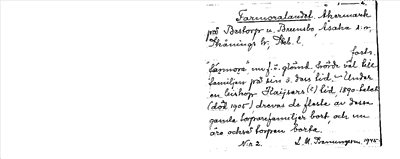 Farmoralandet. Åkermark
på Bestorp u. Brunsbo, Åsaka s:n,
Skånings hd, Skb. l.
forts.
"farmora" nu f.ö. glömd, hörde väl till
familjen på sin s. dess tid. – Under
en biskop (?) tid 1890-talet
(död 1905) drevos de flesta av dessa
gamla torparefamiljer bort, och nu
äro också torpen borta.
N:r 2. L. M. Benningson. 1945